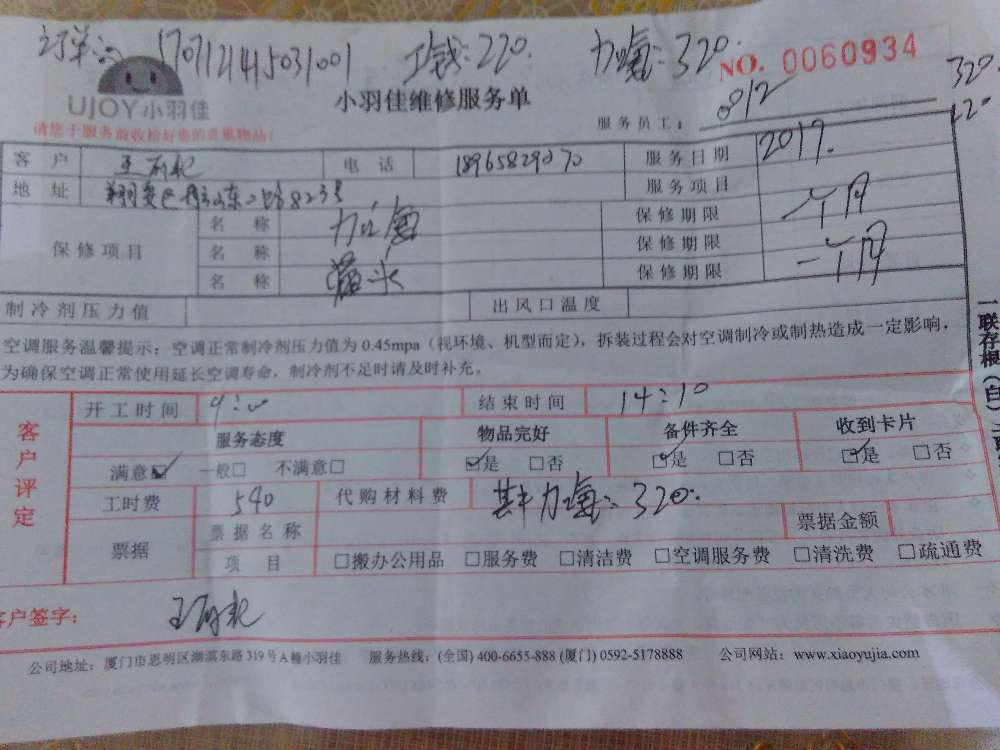 订单: 170712141503l001 工钱: 220. 加氟: 320. NO. 0060934
320
220
UJOY小羽佳 小羽佳维修服务单 服务员工: 0812
请您于服务前收拾好您的贵重物品!
客户 电话 18965829070 服务日期 2017.
地址 翔安区 东二路823号 服务项目
保修项目 名称 加氟 保修期限 一个月
名称 保修期限
名称 漏水 保修期限 一个月
制冷剂压力值 出风口温度
空调服务温馨提示: 空调正常制冷剂压力值为 0.45mpa (视环境、机型而定), 拆装过程会对空调制冷或制热造成一定影响,
为确保空调正常使用延长空调寿命, 制冷剂不足时请及时补充。
一联存根(白)
客户评定 开工时间 9:00 结束时间 14:10
服务态度 物品完好 备件齐全 收到卡片
满意☑ 一般□ 不满意□ ☑是 □否 ☑是 □否 ☑是 □否
工时费 540 代购材料费 其中加氟: 320.
票据 票据名称 票据金额
项目 □搬办公用品 □服务费 □清洁费 □空调服务费 □清洗费 □疏通费
客户签字:
公司地址: 厦门市思明区湖滨东路 319 号 A 幢小羽佳 服务热线: (全国) 400-6655-888 (厦门) 0592-5178888 公司网站: www.xiaoyujia.com